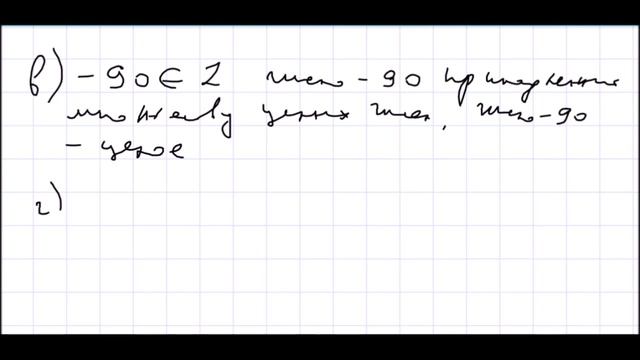 в) -90 ∈ Z число -90 принадлежит
множеству целых чисел, число -90
- целое
г)